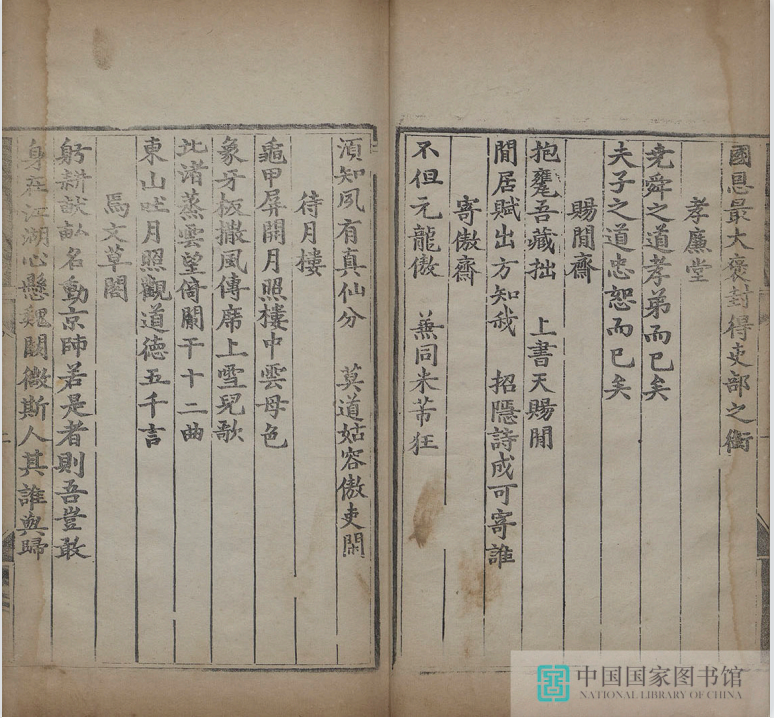 國恩最大褒封得吏部之銜
孝廉堂
堯舜之道孝弟而已矣
夫子之道忠恕而已矣
賜閒齋
抱甕吾藏拙 上書天賜閒
閒居賦出方知我 招隱詩成可寄誰
寄傲齋
不但元龍傲 兼同米芾狂
須知夙有真仙分 莫道姑容傲吏閑
待月樓
龜甲屏開月照樓中雲母色
象牙板撒風傳席上雪兒歌
北渚蒸雲望倚闌干十二曲
東山吐月照觀道德五千言
焉文草閣
躬耕畎畝名動京師若是者則吾豈敢
身在江湖心懸魏闕微斯人其誰與歸
中国国家图书馆
NATIONAL LIBRARY OF CHINA